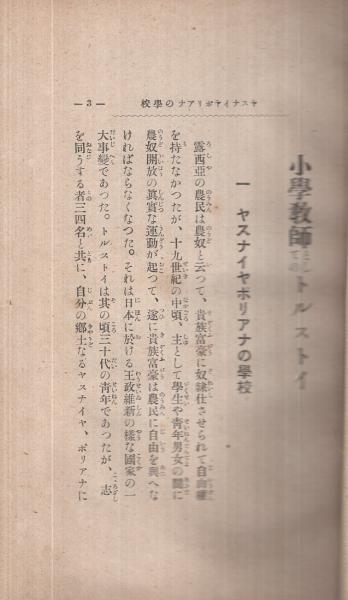 校學のナアリポヤイナスヤ
— 3 —
小學教師トルストイ
一 ヤスナイヤポリアナの學校
露西亞の農民は農奴と云つて、貴族富豪に奴隷仕させられて自由權
を持たなかつたが、十九世紀の中頃、主として學生や靑年男女の間に
農奴開放の眞實な運動が起つて、遂に貴族富豪は農民に自由を與へな
ければならなくなつた。それは日本に於ける王政維新の樣な國家の一
大事變であつた。トルストイは其の頃三十代の靑年であつたが、志
を同うする者三四名と共に、自分の鄕土なるヤスナイヤ、ポリアナに